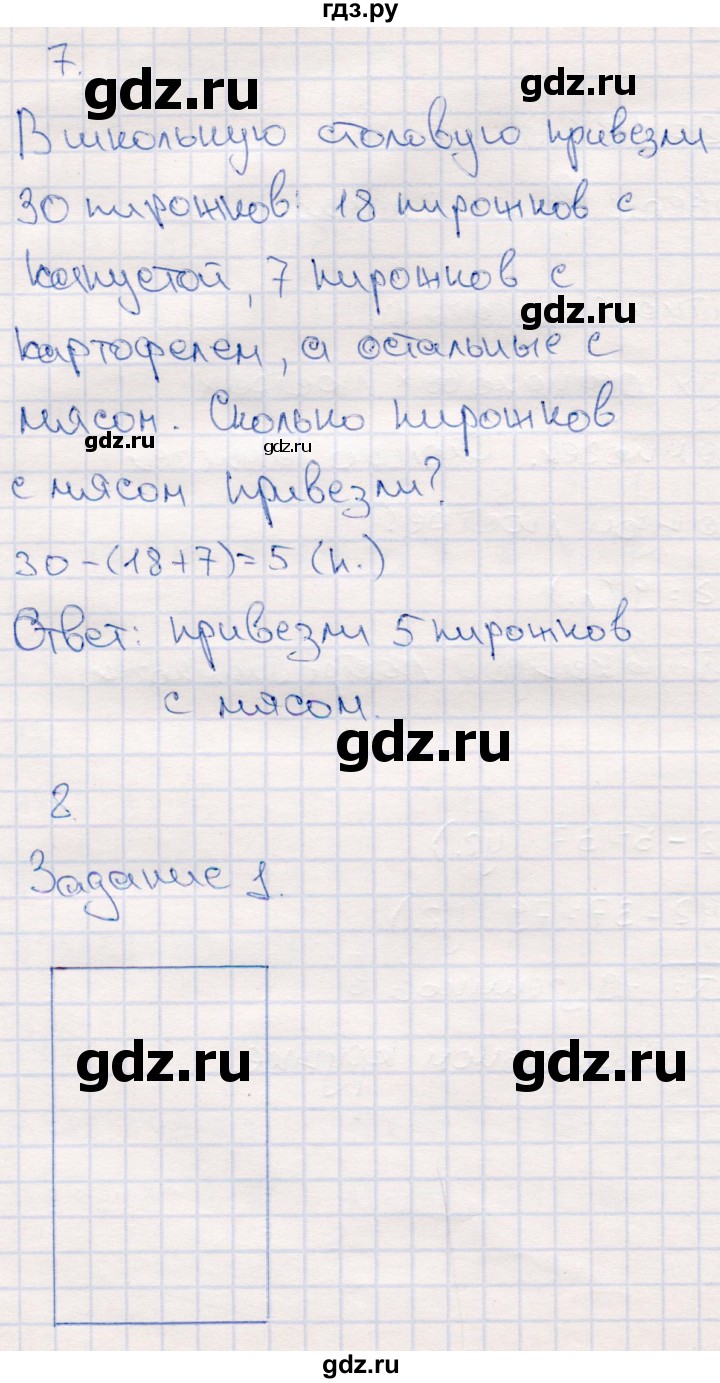 гдз.ру
7.
gdz.ru
gdz.ru
В школьную столовую привезли
30 пирожков: 18 пирожков с
капустой, 7 пирожков с
gdz.ru
картофелем, а остальные с
мясом. Сколько пирожков
gdz.ru
gdz.ru
с мясом привезли?
30-(18+7)=5 (п.)
Ответ: привезли 5 пирожков
с мясом.
gdz.ru
8
Задание 1.
gdz.ru
gdz.ru
gdz.ru